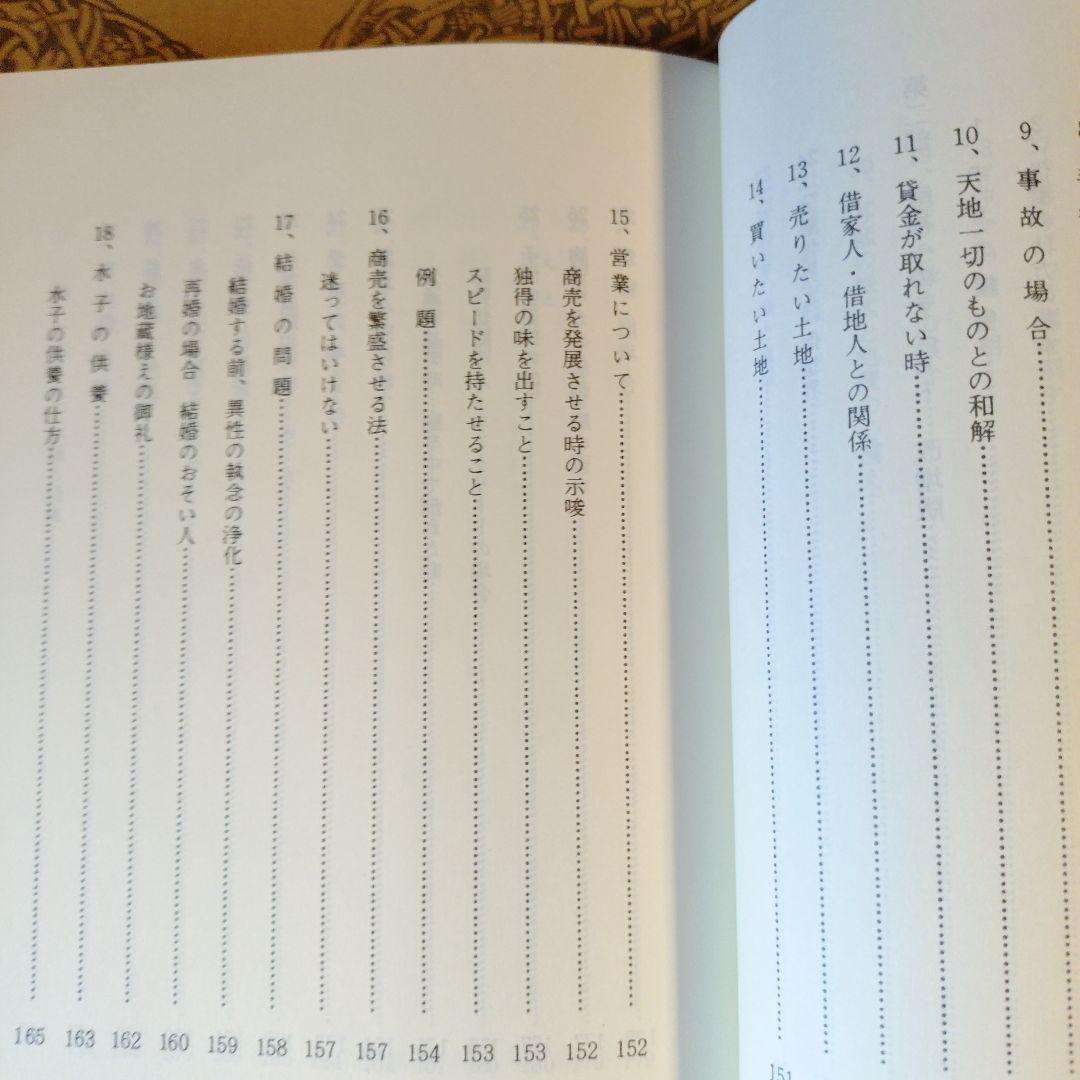 9、事故の場合
10、天地一切のものとの和解
11、貸金が取れない時
12、借家人・借地人との関係
13、売りたい土地
14、買いたい土地 151
15、営業について 152
商売を発展させる時の示唆 152
独得の味を出すこと 153
スピードを持たせること 153
例題 154
16、商売を繁盛させる法 157
迷ってはいけない 157
17、結婚の問題 158
結婚する前、異性の執念の浄化 159
再婚の場合 結婚のおそい人 160
お地蔵様えの御礼 162
18、水子の供養 163
水子の供養の仕方 165